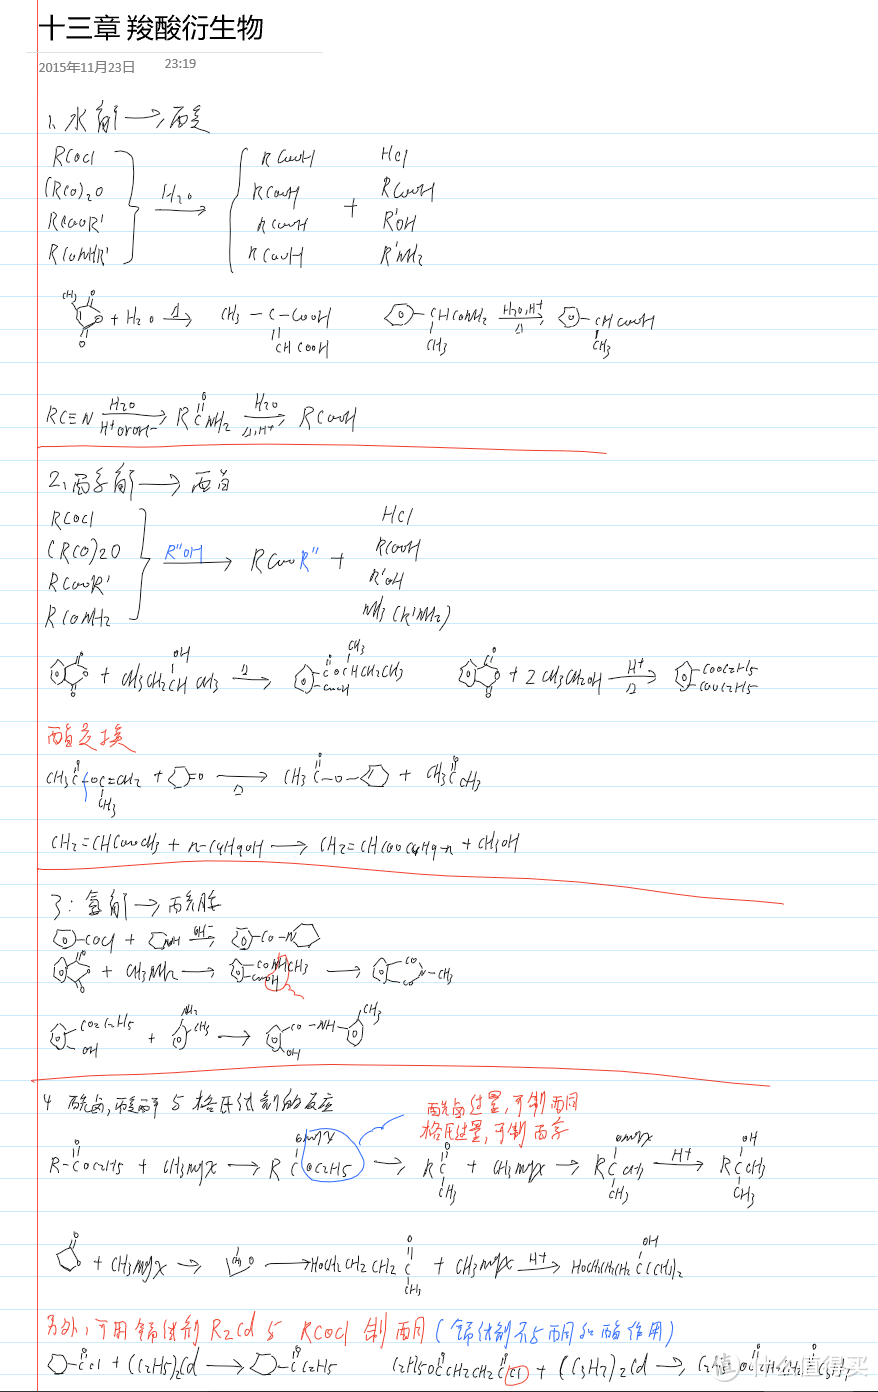 十三章 羧酸衍生物
2015年11月23日 23:19
1、水解 → 酸
RCOCl RCOOH HCl
(RCO)2O H2O RCOOH + RCOOH
RCOOR' RCOOH R'OH
RCONHR' RCOOH R'NH2
CH3 O O O + H2O △ CH3-C-COOH CHCONH2 H2O,H+ CHCOOH
CHCOOH CH3 △ CH3
RC≡N H2O H+orOH- RCNH2 O H2O △,H+ RCOOH
2、醇解 → 酯
RCOCl HCl
(RCO)2O R''OH RCOOR'' + RCOOH
RCOOR' R'OH
RCONH2 NH3(R'NH2)
O O O + CH3CH2CHCH3 OH △ COCHCH2CH3 O CH3 COOH O O O + 2CH3CH2OH H+ △ COOC2H5 COOC2H5
酯交换
CH3C-OC=CH2 O CH3 + =O △ CH3C-O- O + CH3CCH3 O
CH2=CHCOOCH3 + n-C4H9OH → CH2=CHCOOC4H9-n + CH3OH
3: 氨解 → 酰胺
-COCl + NH OH- -CO-N
O O O + CH3NH2 → CONHCH3 COOH → CO CO N-CH3
CO2C2H5 OH + NH2 CH3 → CO-NH- OH CH3
4 酰卤,酸酐与格氏试剂的反应
酰卤过量,可制酮
格氏过量,可制醇
R-COC2H5 O + CH3MgX → RC OMgX OC2H5 CH3 → RC O CH3 + CH3MgX → RCCH3 OMgX CH3 H+ RCCH3 OH CH3
O + CH3MgX → O → HOCH2CH2CH2C O CH3 + CH3MgX H+ HOCH2CH2CH2C(CH3)2 OH
另外,可用镉试剂 R2Cd 与 RCOCl 制酮(镉试剂不与酮和酯作用)
-CCl O + (C2H5)2Cd → -CC2H5 O C2H5OCCH2CH2CCl O O + (C3H7)2Cd → C2H5OCCH2CH2CC3H7
值 什么值得买